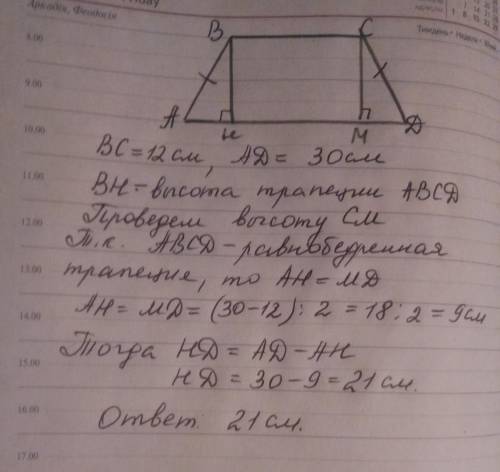 Аркадія, Феодосія
Тиждень • Неделя • Week
8.00
B
C
9.00
A
H
M
D
10.00
BC = 12 см, AD = 30 см
11.00
BH – высота трапеции ABCD
12.00
Проведем высоту CM
Т.к. ABCD – равнобедренная
13.00
трапеция, то AH = MD
14.00
AH = MD = (30 – 12) : 2 = 18 : 2 = 9 см
Тогда HD = AD – AH
15.00
HD = 30 – 9 = 21 см.
16.00
Ответ. 21 см.
17.00